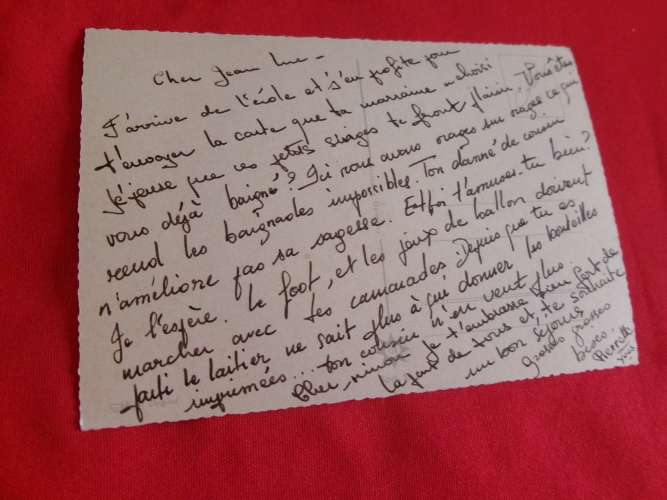 Cher Jean Luc -
J'arrive de l'école et j'en profite pour
t'envoyer la carte que ta marraine a choisi
je pense que ces petits singes te feront plaisir. Vous êtes
vous déjà baigné? Ici nous avons orages sur orages ce qui
rend les baignades impossibles. Ton damné de cousin
n'améliore pas sa sagesse. Et toi t'amuses-tu bien?
Je l'espère. Le foot, et les jeux de ballon doivent
marcher avec tes camarades. Depuis que tu es
parti le laitier ne sait plus à qui donner les bouteilles
imprimées... ton cousin n'en veut plus.
Cher minou je t'embrasse bien fort de
la part de tous et te souhaite
un bon séjour
Grosses grosses
bises.
Pierrette